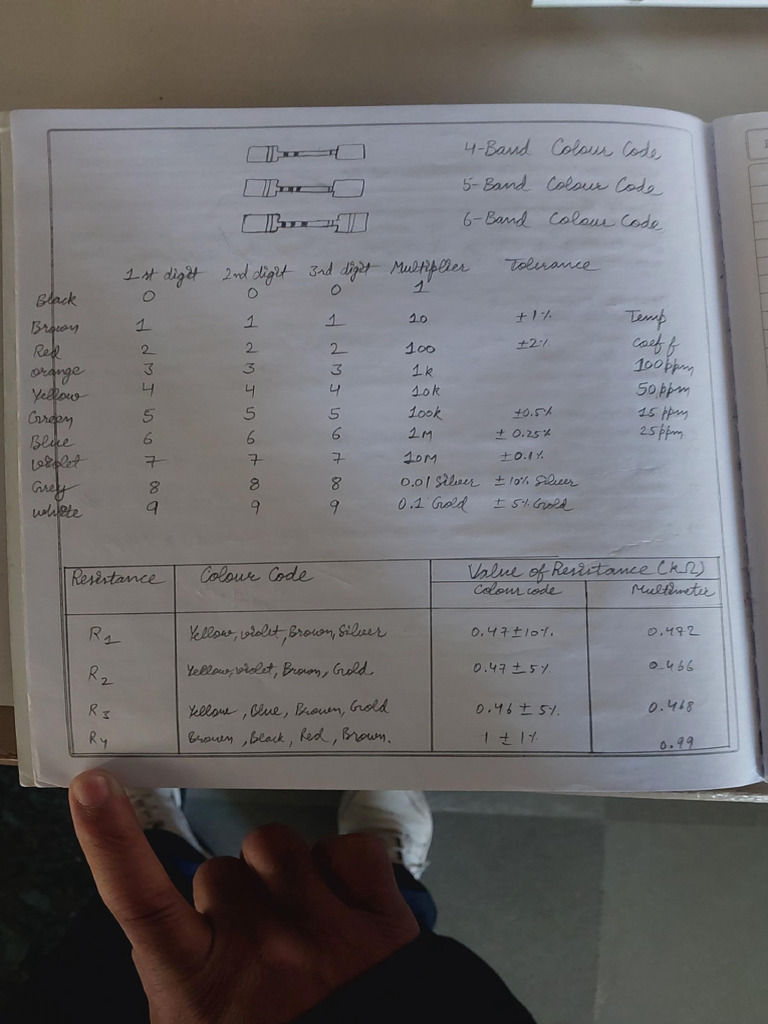 4-Band Colour Code
5-Band Colour Code
6-Band Colour Code
1st digit 2nd digit 3rd digit Multiplier Tolerance
Black 0 0 0 1
Brown 1 1 1 10 ±1% Temp
Red 2 2 2 100 ±2% Coeff
orange 3 3 3 1k 100ppm
Yellow 4 4 4 10k 50ppm
Green 5 5 5 100k ±0.5% 15ppm
Blue 6 6 6 1M ±0.25% 25ppm
violet 7 7 7 10M ±0.1%
Grey 8 8 8 0.01 Silver ±10% Silver
white 9 9 9 0.1 Gold ±5% Gold
Resistance Colour Code Value of Resistance (kΩ)
Colour code Multimeter
R1 Yellow, violet, Brown, Silver 0.47±10% 0.472
R2 Yellow, violet, Brown, Gold 0.47±5% 0.466
R3 Yellow, Blue, Brown, Gold 0.46 ± 5% 0.468
R4 Brown, Black, Red, Brown. 1 ± 1% 0.99